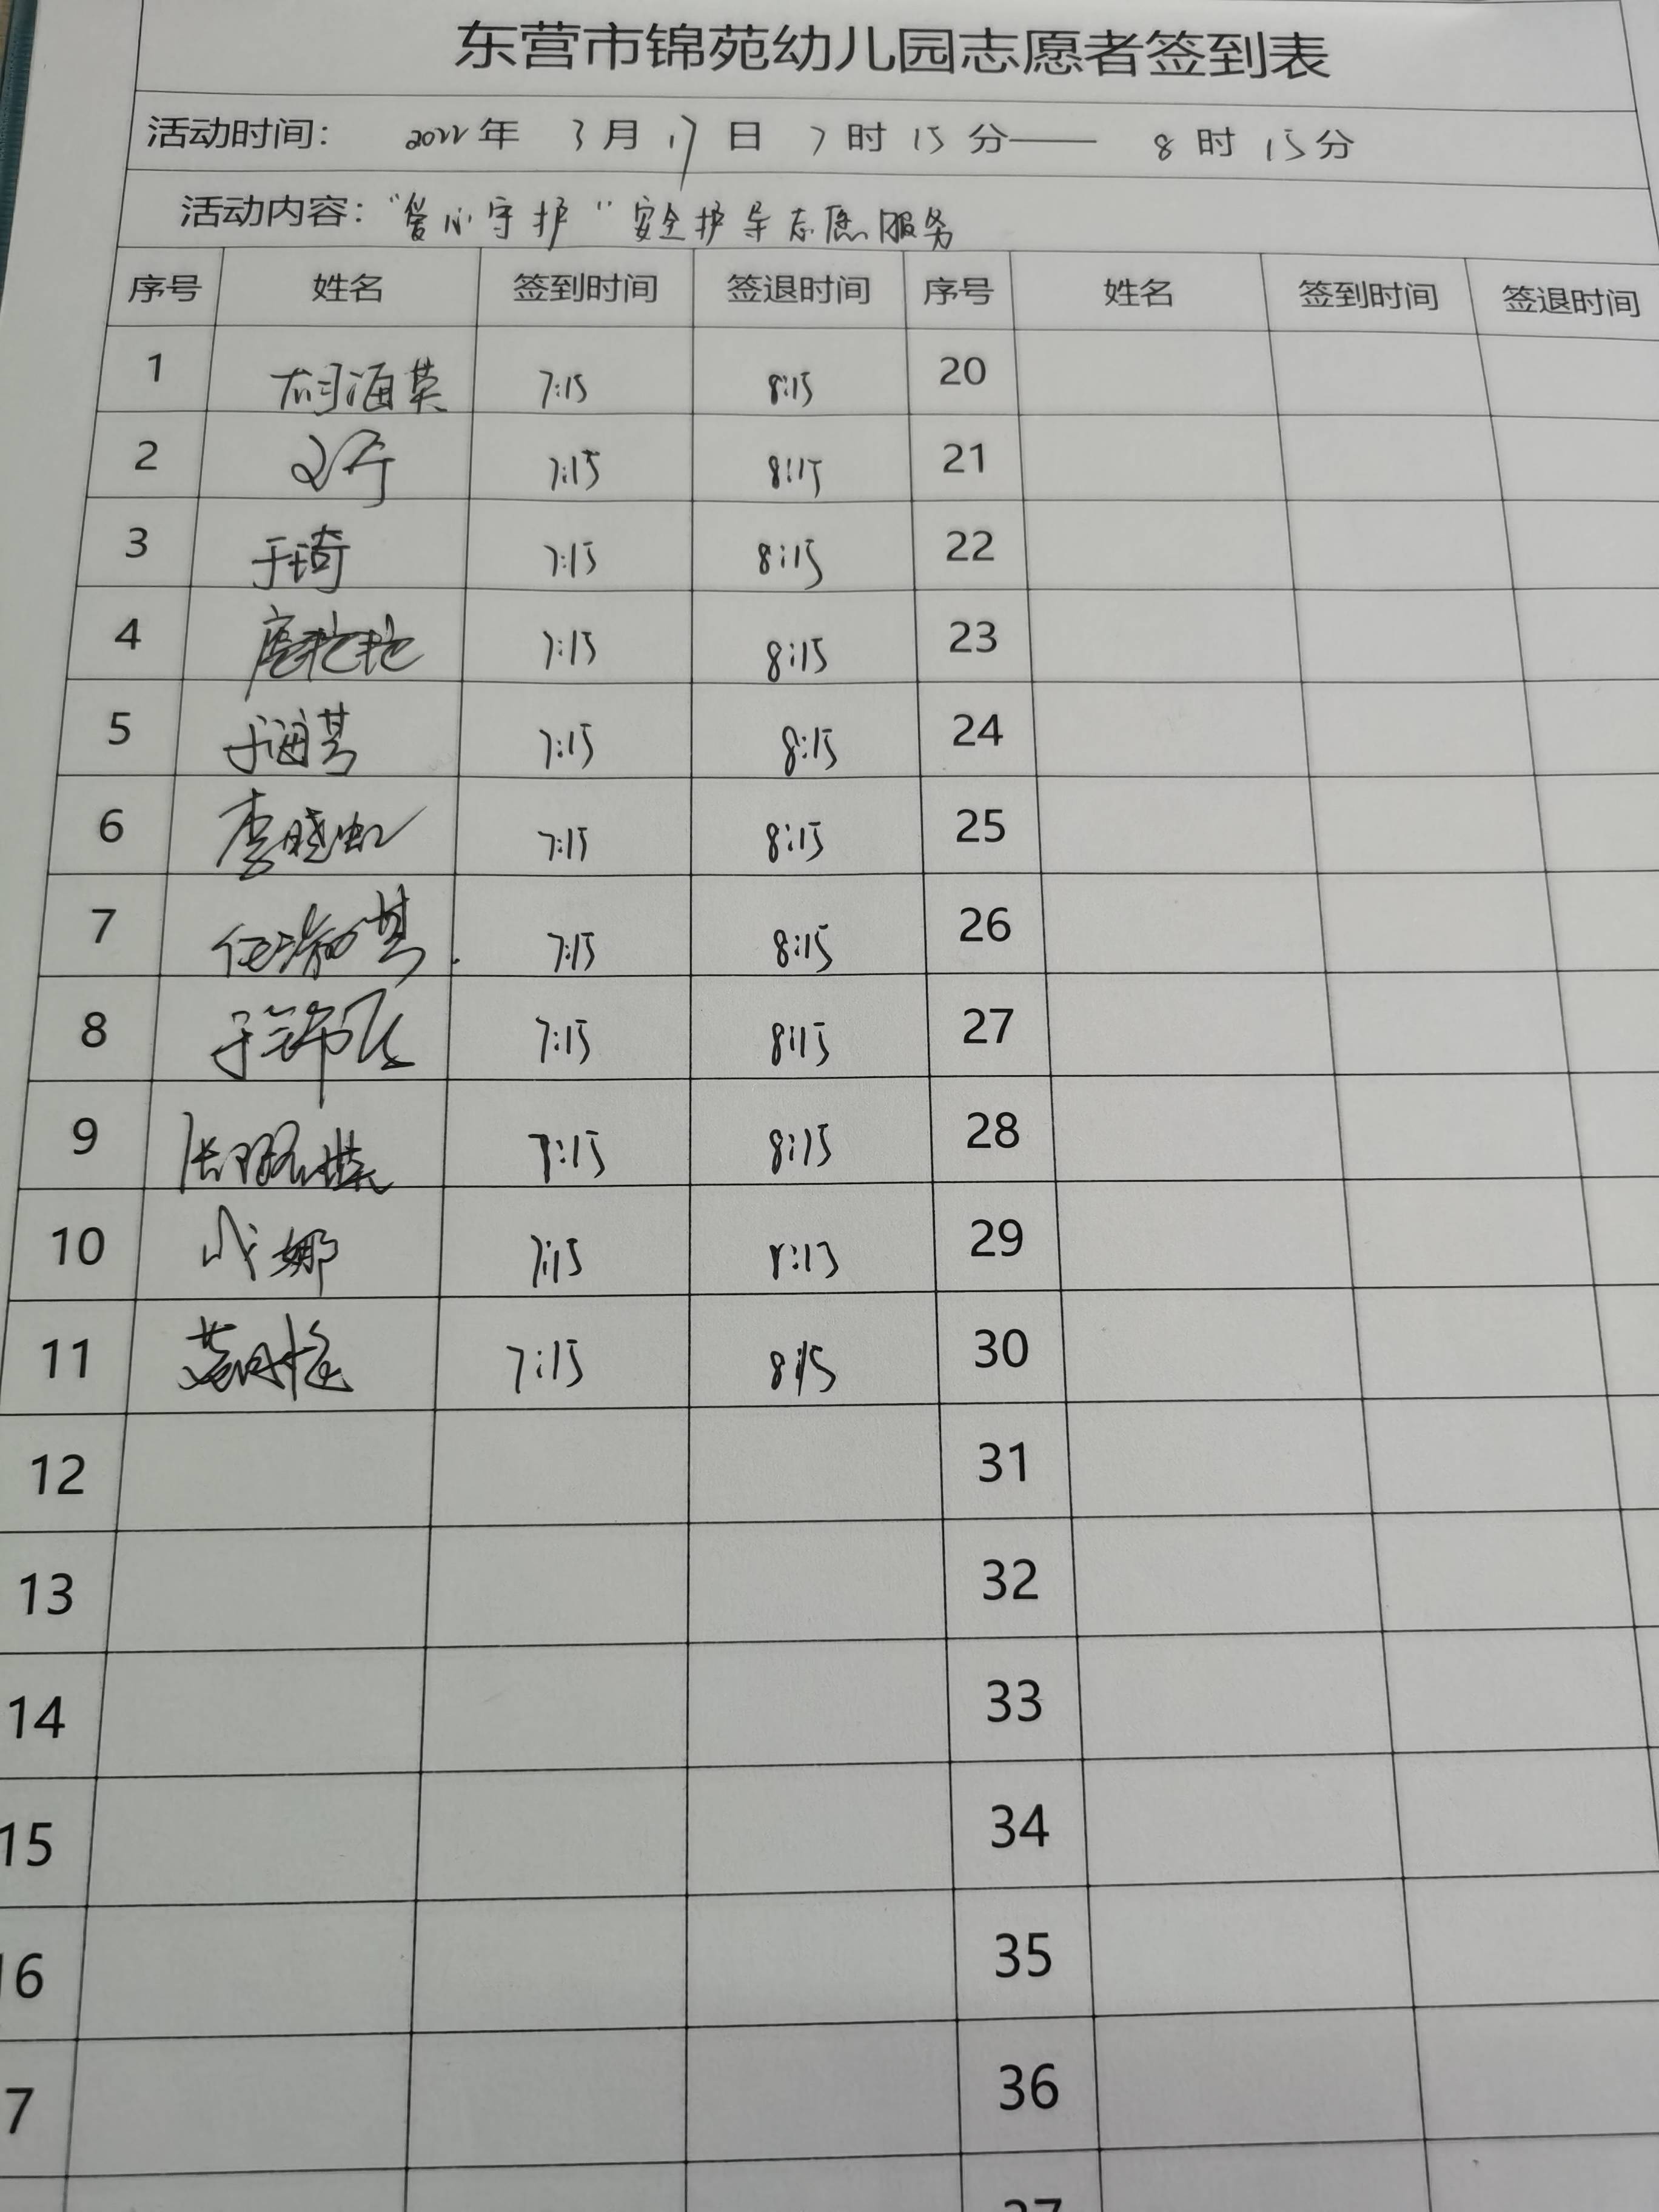 东营市锦苑幼儿园志愿者签到表
活动时间： 2022年 3月 17日 7时 15分—— 8时 15分
活动内容：“爱心守护”安全护导志愿服务
序号 姓名 签到时间 签退时间 序号 姓名 签到时间 签退时间
1 胡海英 7:15 8:15 20
2 7:15 8:15 21
3 于琦 7:15 8:15 22
4 7:15 8:15 23
5 于海芳 7:15 8:15 24
6 李晓虹 7:15 8:15 25
7 7:15 8:15 26
8 于锦飞 7:15 8:15 27
9 7:15 8:15 28
10 成娜 7:15 8:15 29
11 7:15 8:15 30
12 31
13 32
14 33
15 34
16 35
7 36
37